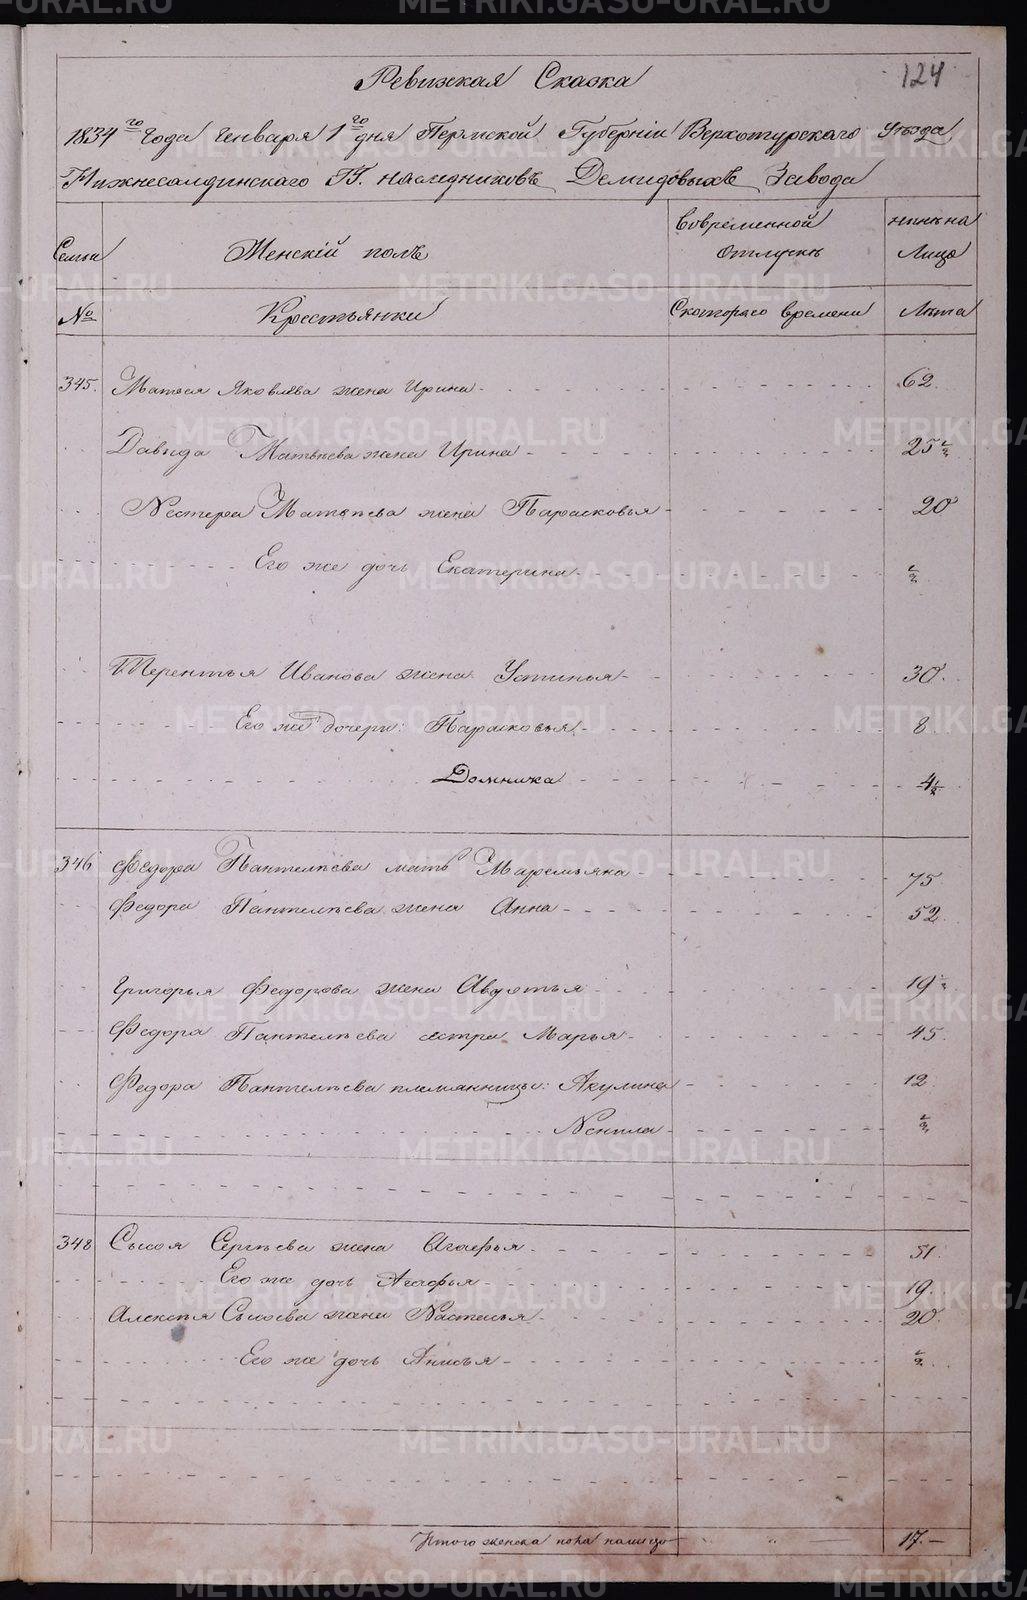 124
Ревизкая Сказка
1834го года Генваря 1го дня Пермской Губерніи Верхотурскаго уѣзда
Нижнесалдинскаго Гг. наследниковъ Демидовыхъ Завода
Семьи Женскій полъ Вовременной отлучкѣ нынѣ на Лицо
№ Крестьянки Скотораго времени Лѣта
345. Матвѣя Яковлева жена Ирина 62
Давыда Матвѣева жена Ирина 25 ½
Нестера Матвѣева жена Парасковья 20
Его же дочь Екатерина ½
Терентья Иванова жена Устинья 30.
Его же дочери: Парасковья 8
Домника 4½
346 Федора Пантелѣева мать Маремьяна 75
Федора Пантелѣева жена Анна 52
Григорья Федорова жена Авдотья 19 ½
Федора Пантелѣева сестра Марья 45.
Федора Пантелѣева племянницы: Акулина 12
Ненила ½
348 Сысоя Сергѣева жена Агафья 51.
Его же дочь Агафья 19.
Алексѣя Сысоева жена Настасья 20.
Его же дочь Анисья ½
Итого женска пола налицо 17.
METRIKI.GASO-URAL.RU